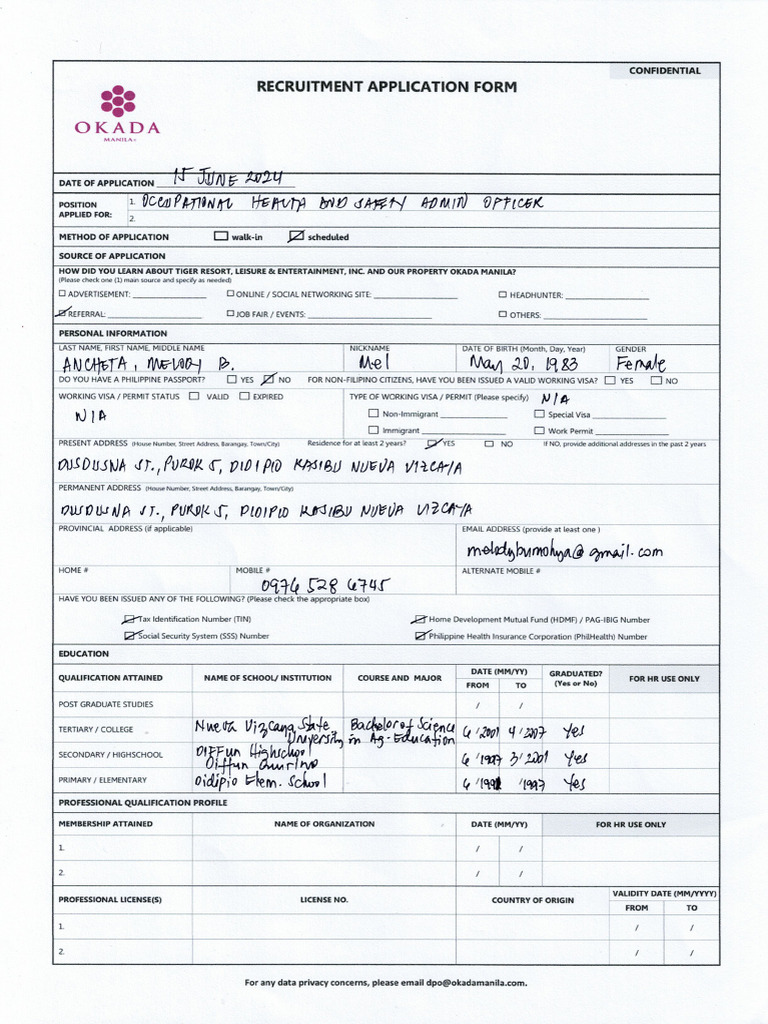 CONFIDENTIAL
RECRUITMENT APPLICATION FORM
OKADA
MANILA
DATE OF APPLICATION 15 JUNE 2024
POSITION APPLIED FOR: 1. OCCUPATIONAL HEALTH AND SAFETY ADMIN OFFICER
2.
METHOD OF APPLICATION walk-in scheduled
SOURCE OF APPLICATION
HOW DID YOU LEARN ABOUT TIGER RESORT, LEISURE & ENTERTAINMENT, INC. AND OUR PROPERTY OKADA MANILA?
(Please check one (1) main source and specify as needed)
ADVERTISEMENT: ONLINE / SOCIAL NETWORKING SITE: HEADHUNTER:
REFERRAL: JOB FAIR / EVENTS: OTHERS:
PERSONAL INFORMATION
LAST NAME, FIRST NAME, MIDDLE NAME NICKNAME DATE OF BIRTH (Month, Day, Year) GENDER
ANCHETA, MELODY B. Mel May 20, 1983 Female
DO YOU HAVE A PHILIPPINE PASSPORT? YES NO FOR NON-FILIPINO CITIZENS, HAVE YOU BEEN ISSUED A VALID WORKING VISA? YES NO
WORKING VISA / PERMIT STATUS VALID EXPIRED TYPE OF WORKING VISA / PERMIT (Please specify) N/A
N/A Non-Immigrant Special Visa
Immigrant Work Permit
PRESENT ADDRESS (House Number, Street Address, Barangay, Town/City) Residence for at least 2 years? YES NO If NO, provide additional addresses in the past 2 years
DUSDUSNA ST., PUROK 5, DIDIPIO KASIBU NUEVA VIZCAYA
PERMANENT ADDRESS (House Number, Street Address, Barangay, Town/City)
DUSDUSNA ST., PUROK 5, DIDIPIO KASIBU NUEVA VIZCAYA
PROVINCIAL ADDRESS (if applicable) EMAIL ADDRESS (provide at least one )
melodybumohya@gmail.com
HOME # MOBILE # ALTERNATE MOBILE #
0976 528 6745
HAVE YOU BEEN ISSUED ANY OF THE FOLLOWING? (Please check the appropriate box)
Tax Identification Number (TIN) Home Development Mutual Fund (HDMF) / PAG-IBIG Number
Social Security System (SSS) Number Philippine Health Insurance Corporation (PhilHealth) Number
EDUCATION
QUALIFICATION ATTAINED NAME OF SCHOOL/ INSTITUTION COURSE AND MAJOR DATE (MM/YY) FROM TO GRADUATED? (Yes or No) FOR HR USE ONLY
POST GRADUATE STUDIES / /
TERTIARY / COLLEGE Nueva Vizcaya State University Bachelor of Science in Ag-Education 6/2001 4/2007 Yes
SECONDARY / HIGHSCHOOL DIFFun Highschool Diffun Quirino 6/1997 3/2001 Yes
PRIMARY / ELEMENTARY Didipio Elem. School 6/1991 /1997 Yes
PROFESSIONAL QUALIFICATION PROFILE
MEMBERSHIP ATTAINED NAME OF ORGANIZATION DATE (MM/YY) FOR HR USE ONLY
1. / /
2. / /
PROFESSIONAL LICENSE(S) LICENSE NO. COUNTRY OF ORIGIN VALIDITY DATE (MM/YYYY)
FROM TO
1. / /
2. / /
For any data privacy concerns, please email dpo@okadamanila.com.